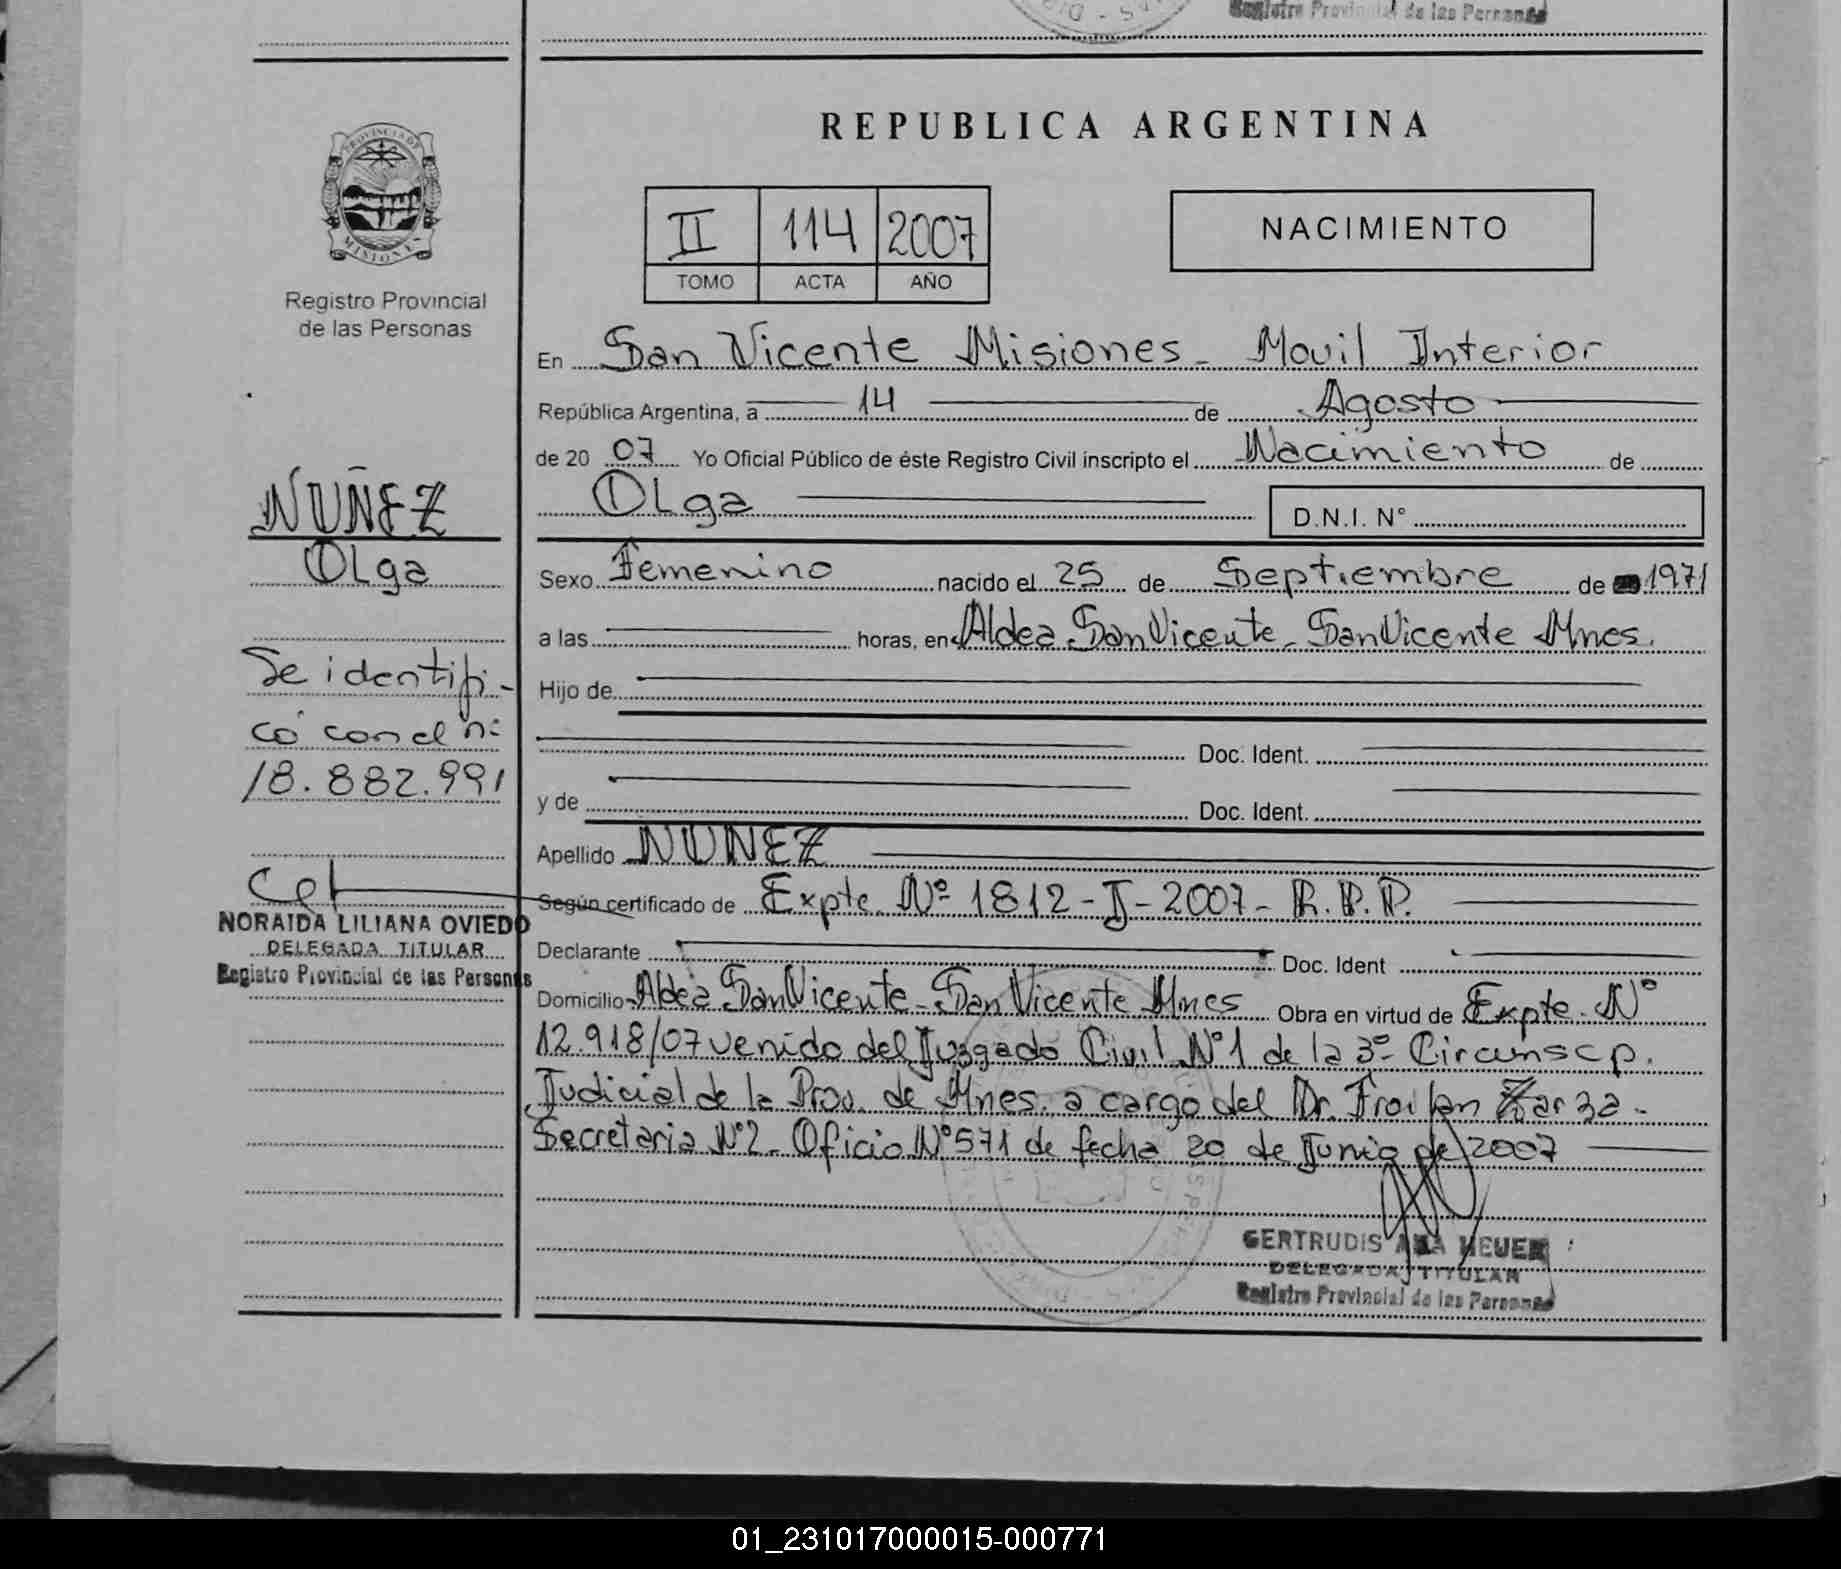 Registro Provincial de las Personas
REPUBLICA ARGENTINA
PROVINCIA DE
MISIONES
Registro Provincial
de las Personas
II 114 2007
TOMO ACTA AÑO
NACIMIENTO
En San Vicente Misiones - Movil Interior
República Argentina, a 14 de Agosto
de 20 07 Yo Oficial Público de éste Registro Civil inscripto el Nacimiento de
Olga
D.N.I. N°
Sexo Femenino nacido el 25 de Septiembre de 1971
a las horas, en Aldea San Vicente - San Vicente Mnes.
Hijo de
Doc. Ident.
y de Doc. Ident.
Apellido NUNEZ
Según certificado de Expte. Nº 1812 - I - 2007 - R.P.P.
Declarante Doc. Ident
Domicilio Aldea San Vicente - San Vicente Mnes Obra en virtud de Expte. N°
12.918/07 venido del Juzgado Civil N°1 de la 3º Circunscp.
Judicial de la Prov. de Mnes. a cargo del Dr. Froilan Zarza -
Secretaria N°2 - Oficio N°571 de fecha 20 de Junio de 2007
GERTRUDIS ANA HEUER
DELEGADA TITULAR
Registro Provincial de las Personas
NUÑEZ
Olga
Se identifi-
có con el n:
18.882.991
NORAIDA LILIANA OVIEDO
DELEGADA TITULAR
Registro Provincial de las Personas
01_231017000015-000771